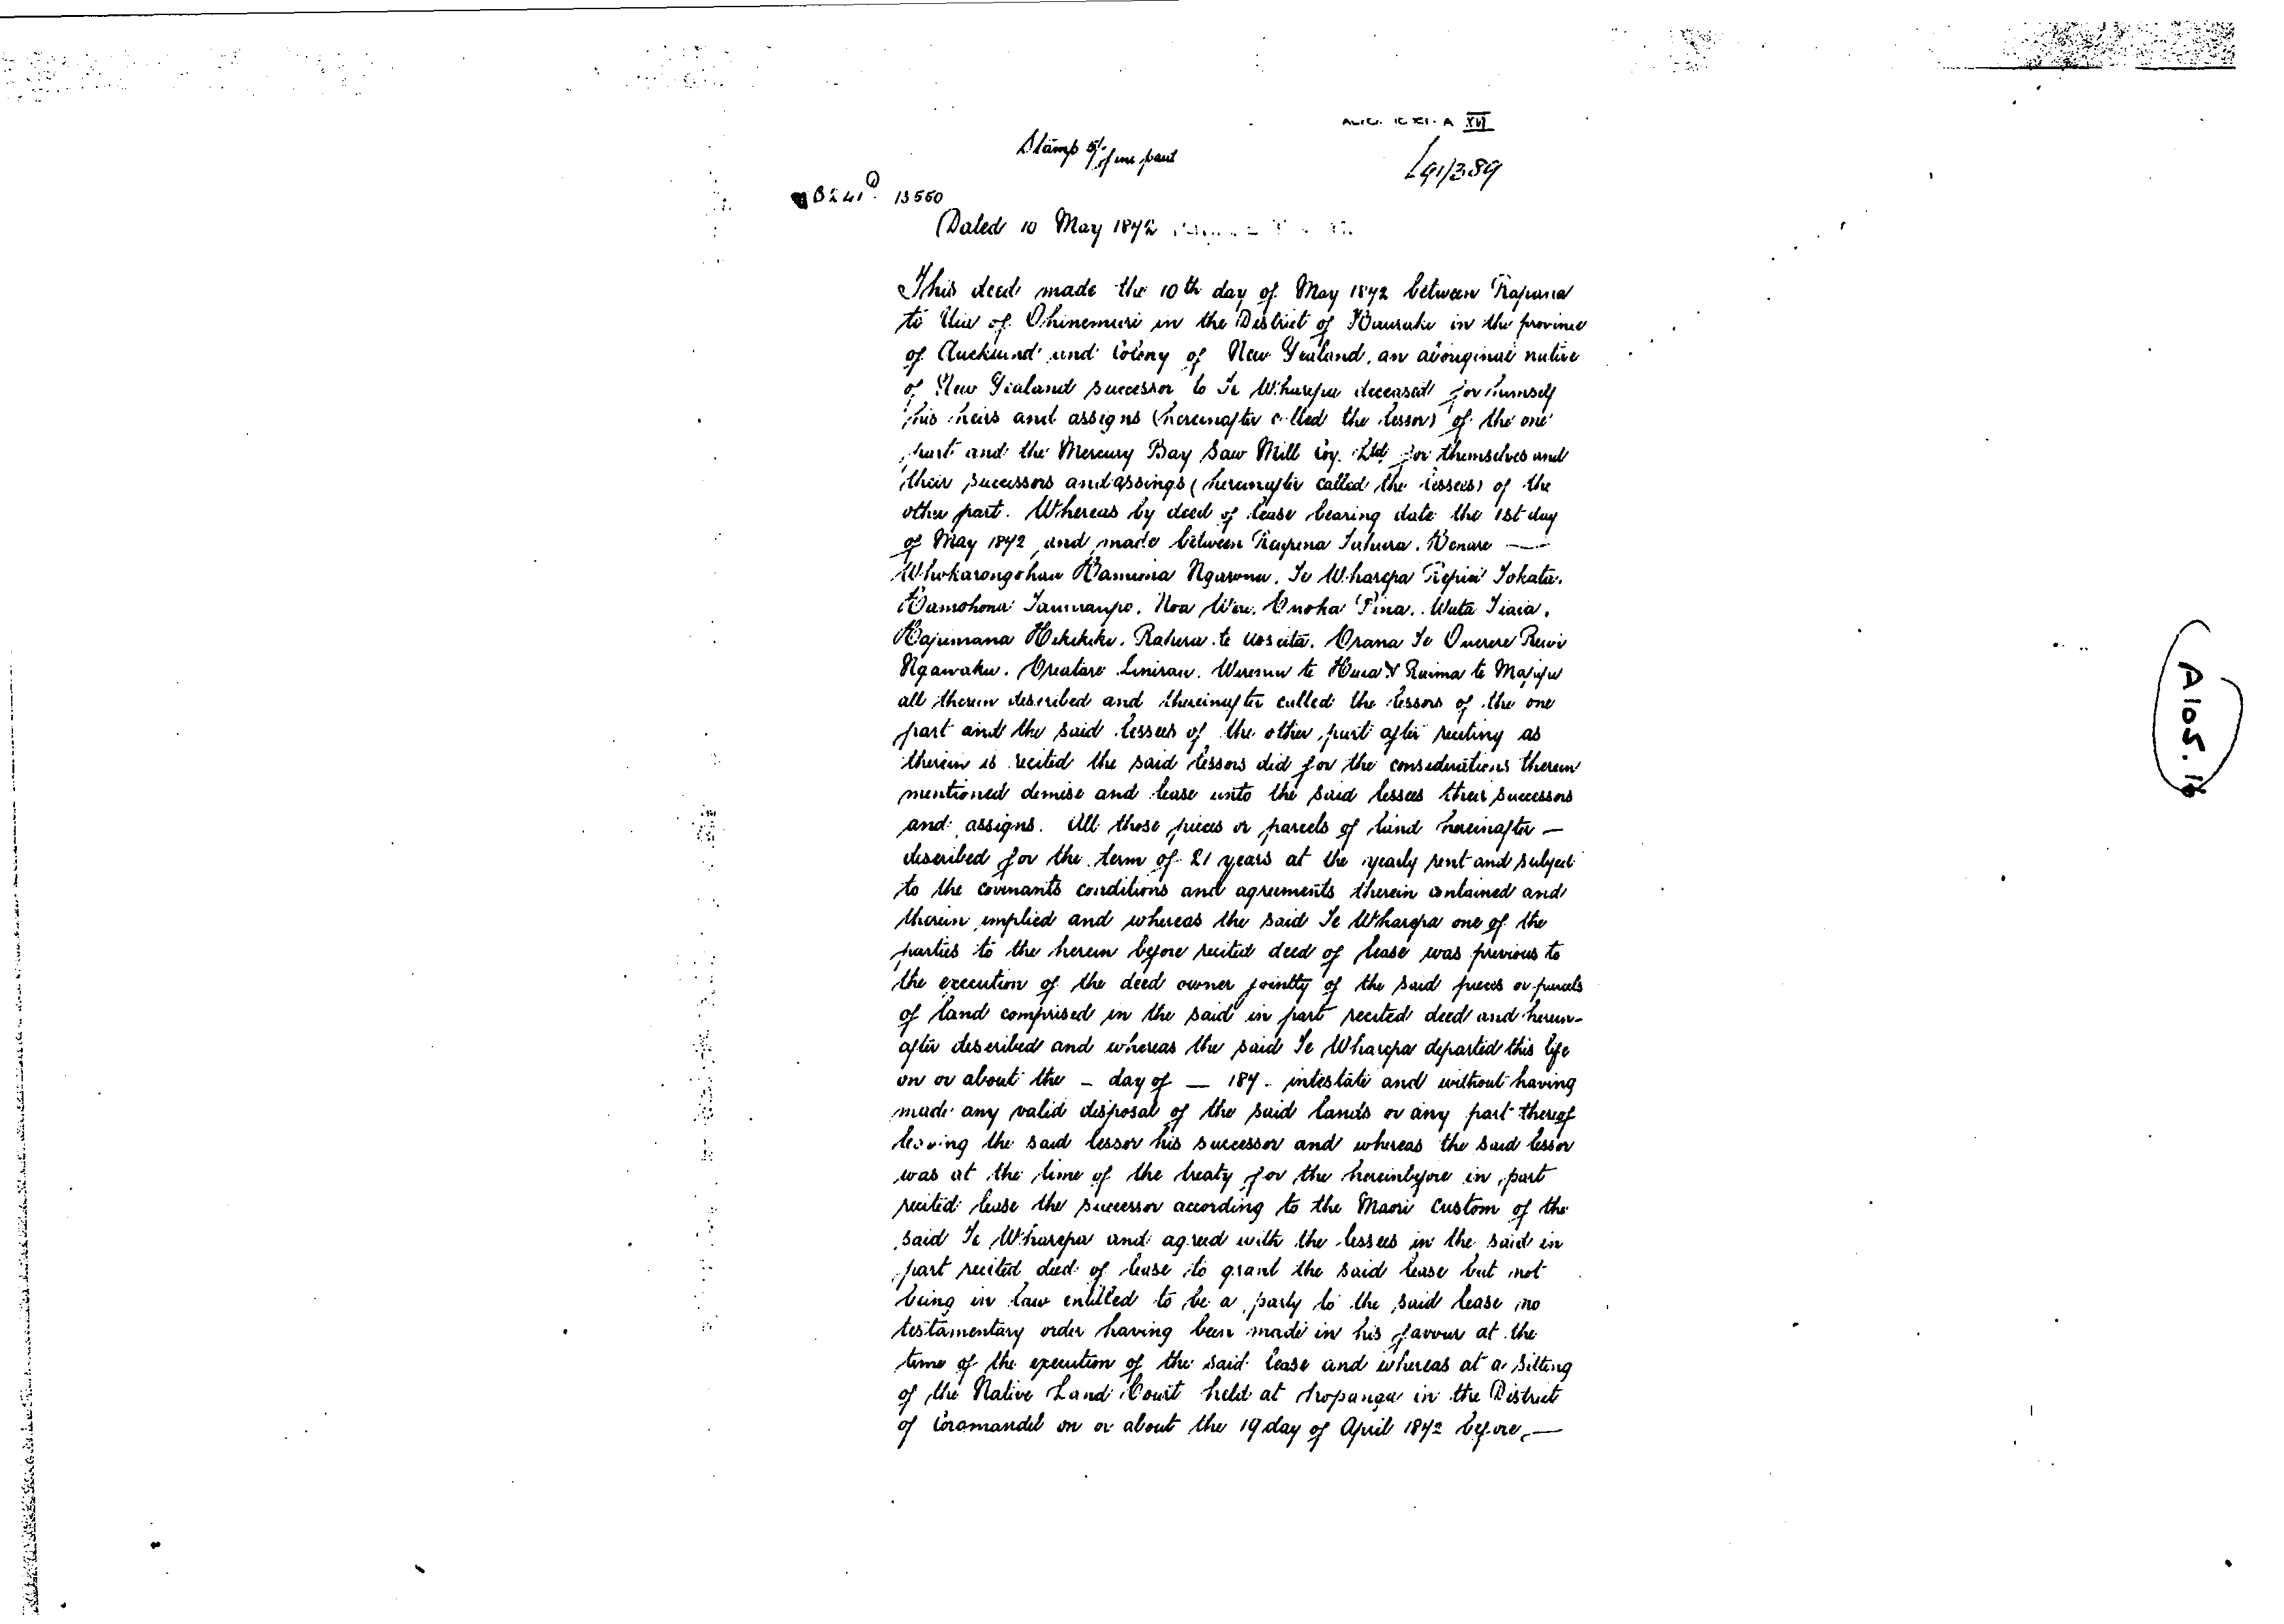 XVI
Stamp 5/- of one part
L91/389
13560
Dated 10 May 1872
This deed made the 10th day of May 1872 between Rapana
to of Ohinemuri in the District of Hauraki in the province
of Auckland and Colony of New Zealand, an aboriginal native
of New Zealand successor to Te Wharepa deceased for himself
his heirs and assigns (hereinafter called the lessor) of the one
part and the Mercury Bay Saw Mill Coy. Ltd for themselves and
their successors and assings (hereinafter called the lessees) of the
other part. Whereas by deed of lease bearing date the 1st day
of May 1872 and made between
Te Wharepa Tokata.
Hikikiki.
te Huia
all therein described and thereinafter called the lessors of the one
part and the said lessees of the other part after reciting as
therein is recited the said lessors did for the considerations therein
mentioned demise and lease unto the said lessees their successors
and assigns. All those pieces or parcels of land hereinafter —
described for the term of 21 years at the yearly rent and subject
to the covenants conditions and agreements therein contained and
therein implied and whereas the said Te Wharepa one of the
parties to the herein before recited deed of lease was previous to
the execution of the deed owner jointly of the said pieces or parcels
of land comprised in the said in part recited deed and herein-
after described and whereas the said Te Wharepa departed this life
on or about the — day of — 187- intestate and without having
made any valid disposal of the said lands or any part thereof
leaving the said lessor his successor and whereas the said lessor
was at the time of the treaty for the hereinbefore in part
recited lease the successor according to the Maori Custom of the
said Te Wharepa and agreed with the lessees in the said in
part recited deed of lease to grant the said lease but not
being in law entitled to be a party to the said lease no
testamentary order having been made in his favour at the
time of the execution of the said lease and whereas at a sitting
of the Native Land Court held at in the District
of Coromandel on or about the 19 day of April 1872 before —
A105.